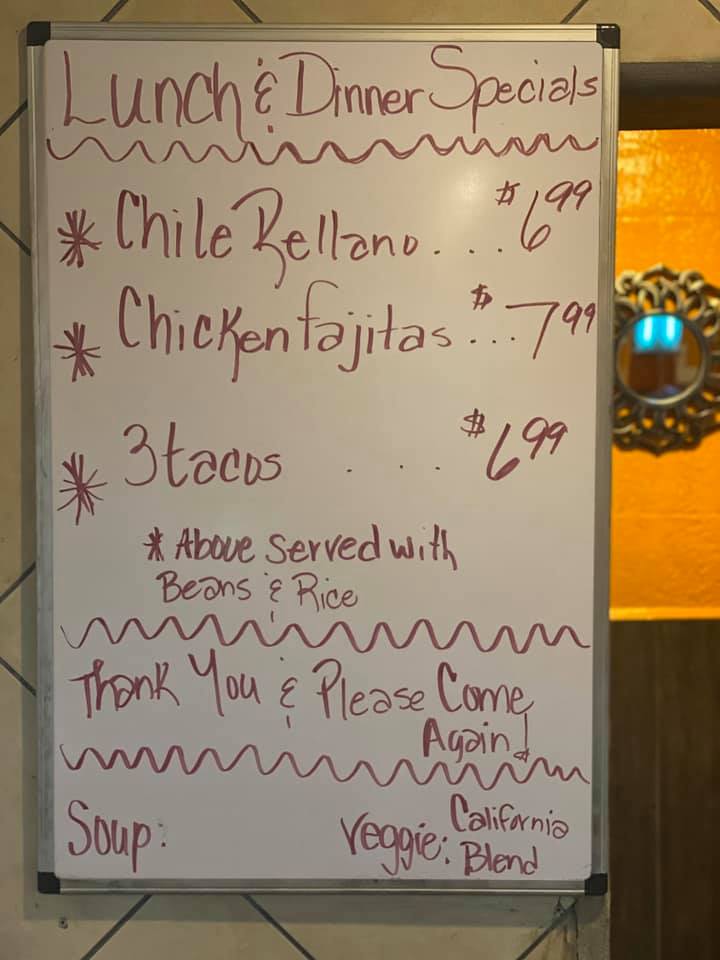 Lunch & Dinner Specials
* Chile Rellano . . . $6.99
* Chicken Fajitas . . . $7.99
* 3 tacos . . . $6.99
* Above Served with
Beans & Rice
Thank You & Please Come
Again!
Soup:
Veggie: California
Blend